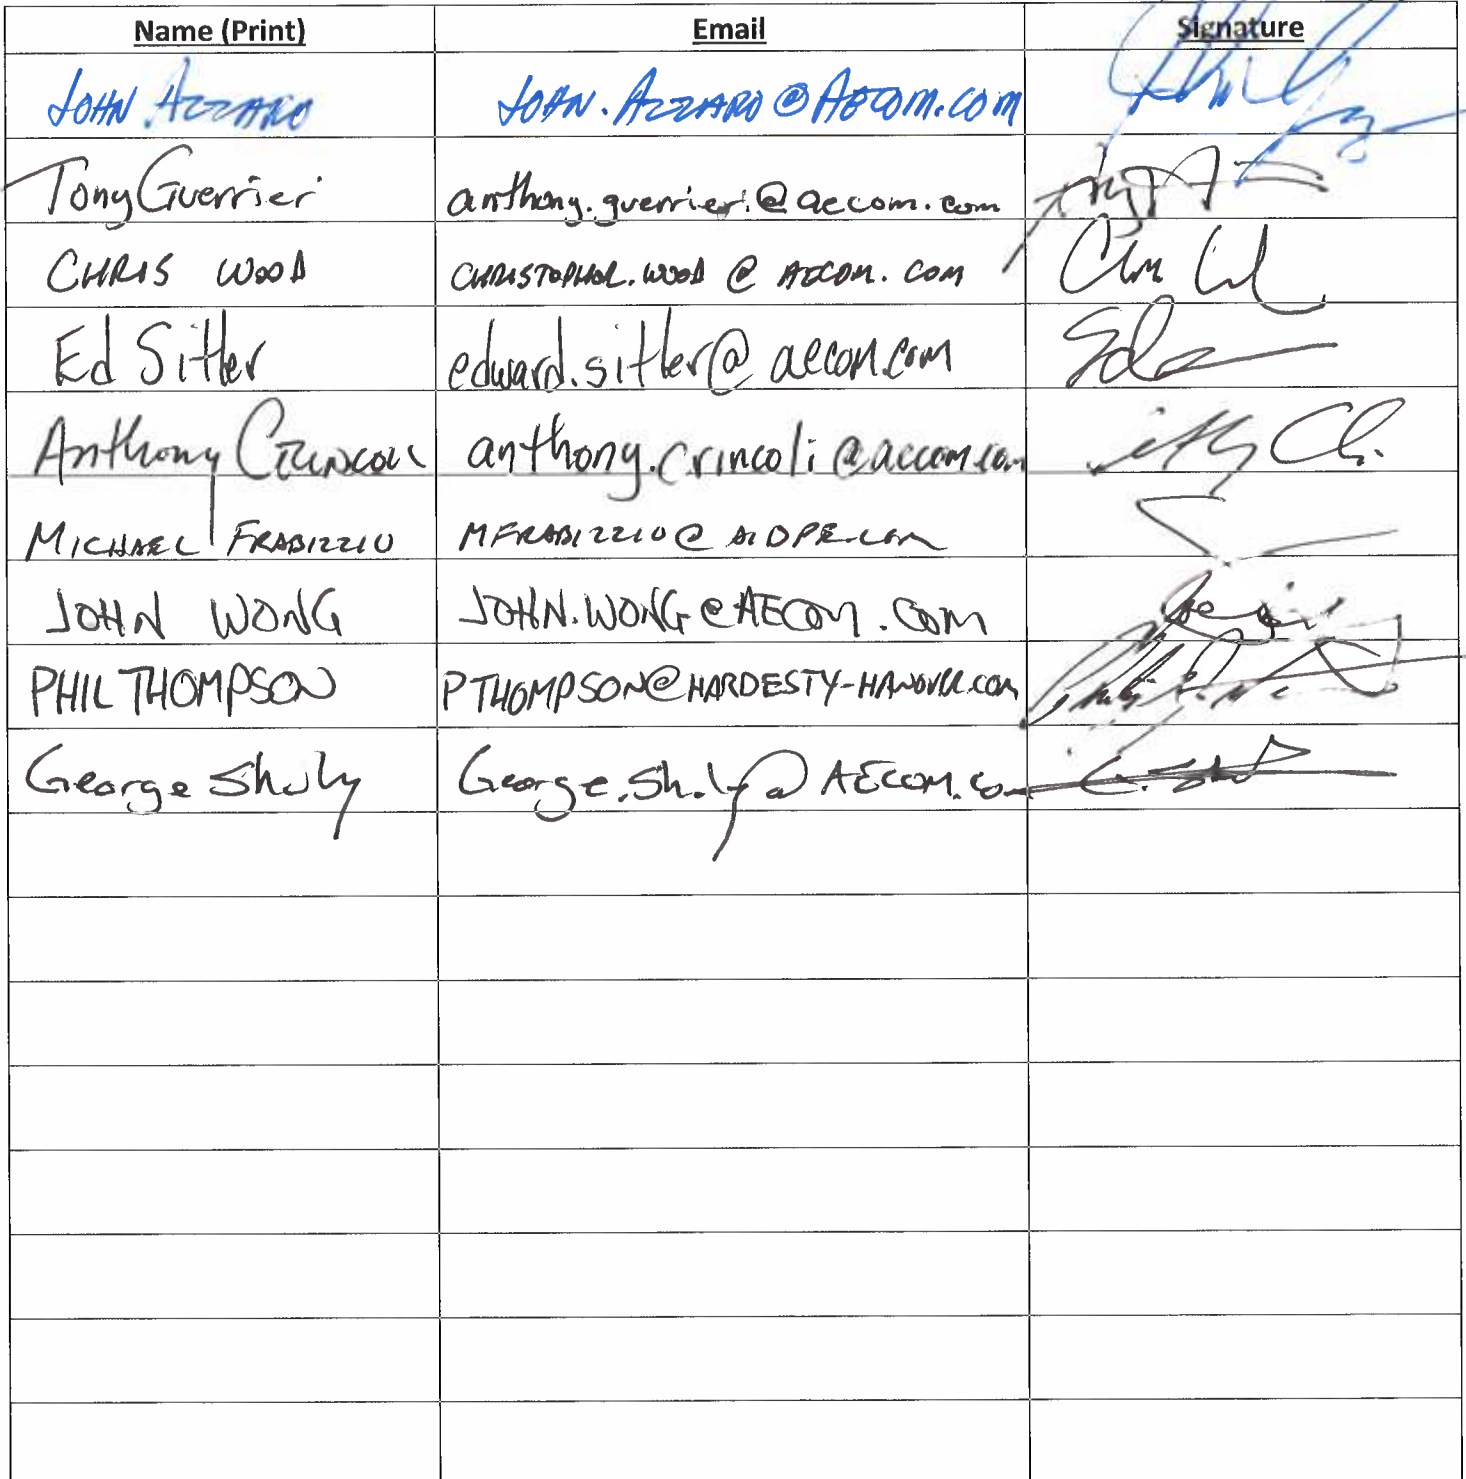 Name (Print) Email Signature
JOHN AZZARO JOHN.AZZARO@AECOM.COM
Tony Guerrier anthony.guerrier@aecom.com
CHRIS WOOD CHRISTOPHER.WOOD @ AECOM.COM
Ed Sitler edward.sitler@aecom.com
Anthony CRINCOLI anthony.crincoli@aecom.com
MICHAEL FRABIZZIO MFRABIZZIO@AIDPE.COM
JOHN WONG JOHN.WONG@AECOM.COM
PHIL THOMPSON PTHOMPSON@HARDESTY-HANOVER.COM
George